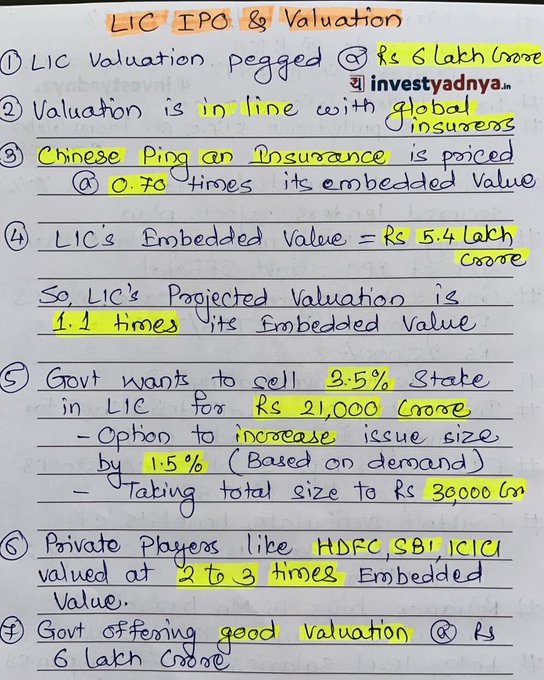 LIC IPO & Valuation
① LIC Valuation pegged @ Rs 6 Lakh Crore
investyadnya.in
② Valuation is in line with global
insurers
③ Chinese Ping an Insurance is priced
@ 0.70 times its embedded Value
④ LIC's Embedded Value = Rs 5.4 Lakh
Crore
So, LIC's Projected Valuation is
1.1 times its Embedded Value
⑤ Govt wants to sell 3.5% Stake
in LIC for Rs 21,000 Crore
- Option to increase issue size
by 1.5% (Based on demand)
- Taking total size to Rs 30,000 Crr
⑥ Private Players like HDFC, SBI, ICICI
valued at 2 to 3 times Embedded
Value.
⑦ Govt offering good valuation @ Rs
6 Lakh Crore